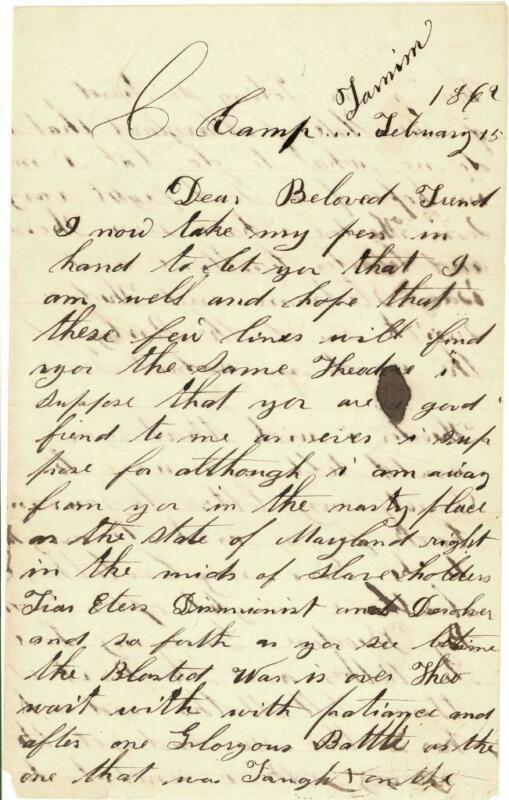 1862
Camp.... February 15
Dear Beloved Friend
I now take my pen in
hand to let yor that I
am well and hope that
these few lines will find
yor the same Theodore i
suppose that yor are a good
fiend to me as ever i sup
pose for although i am away
from yor in the nasty place
as the state of Maryland right
in the mids of slave holders
Disunionist and
and so forth as yor see be time
the Blasted War is over Theo
wait with with patiance and
after one Gloryous Battle as the
one that was Faught on the